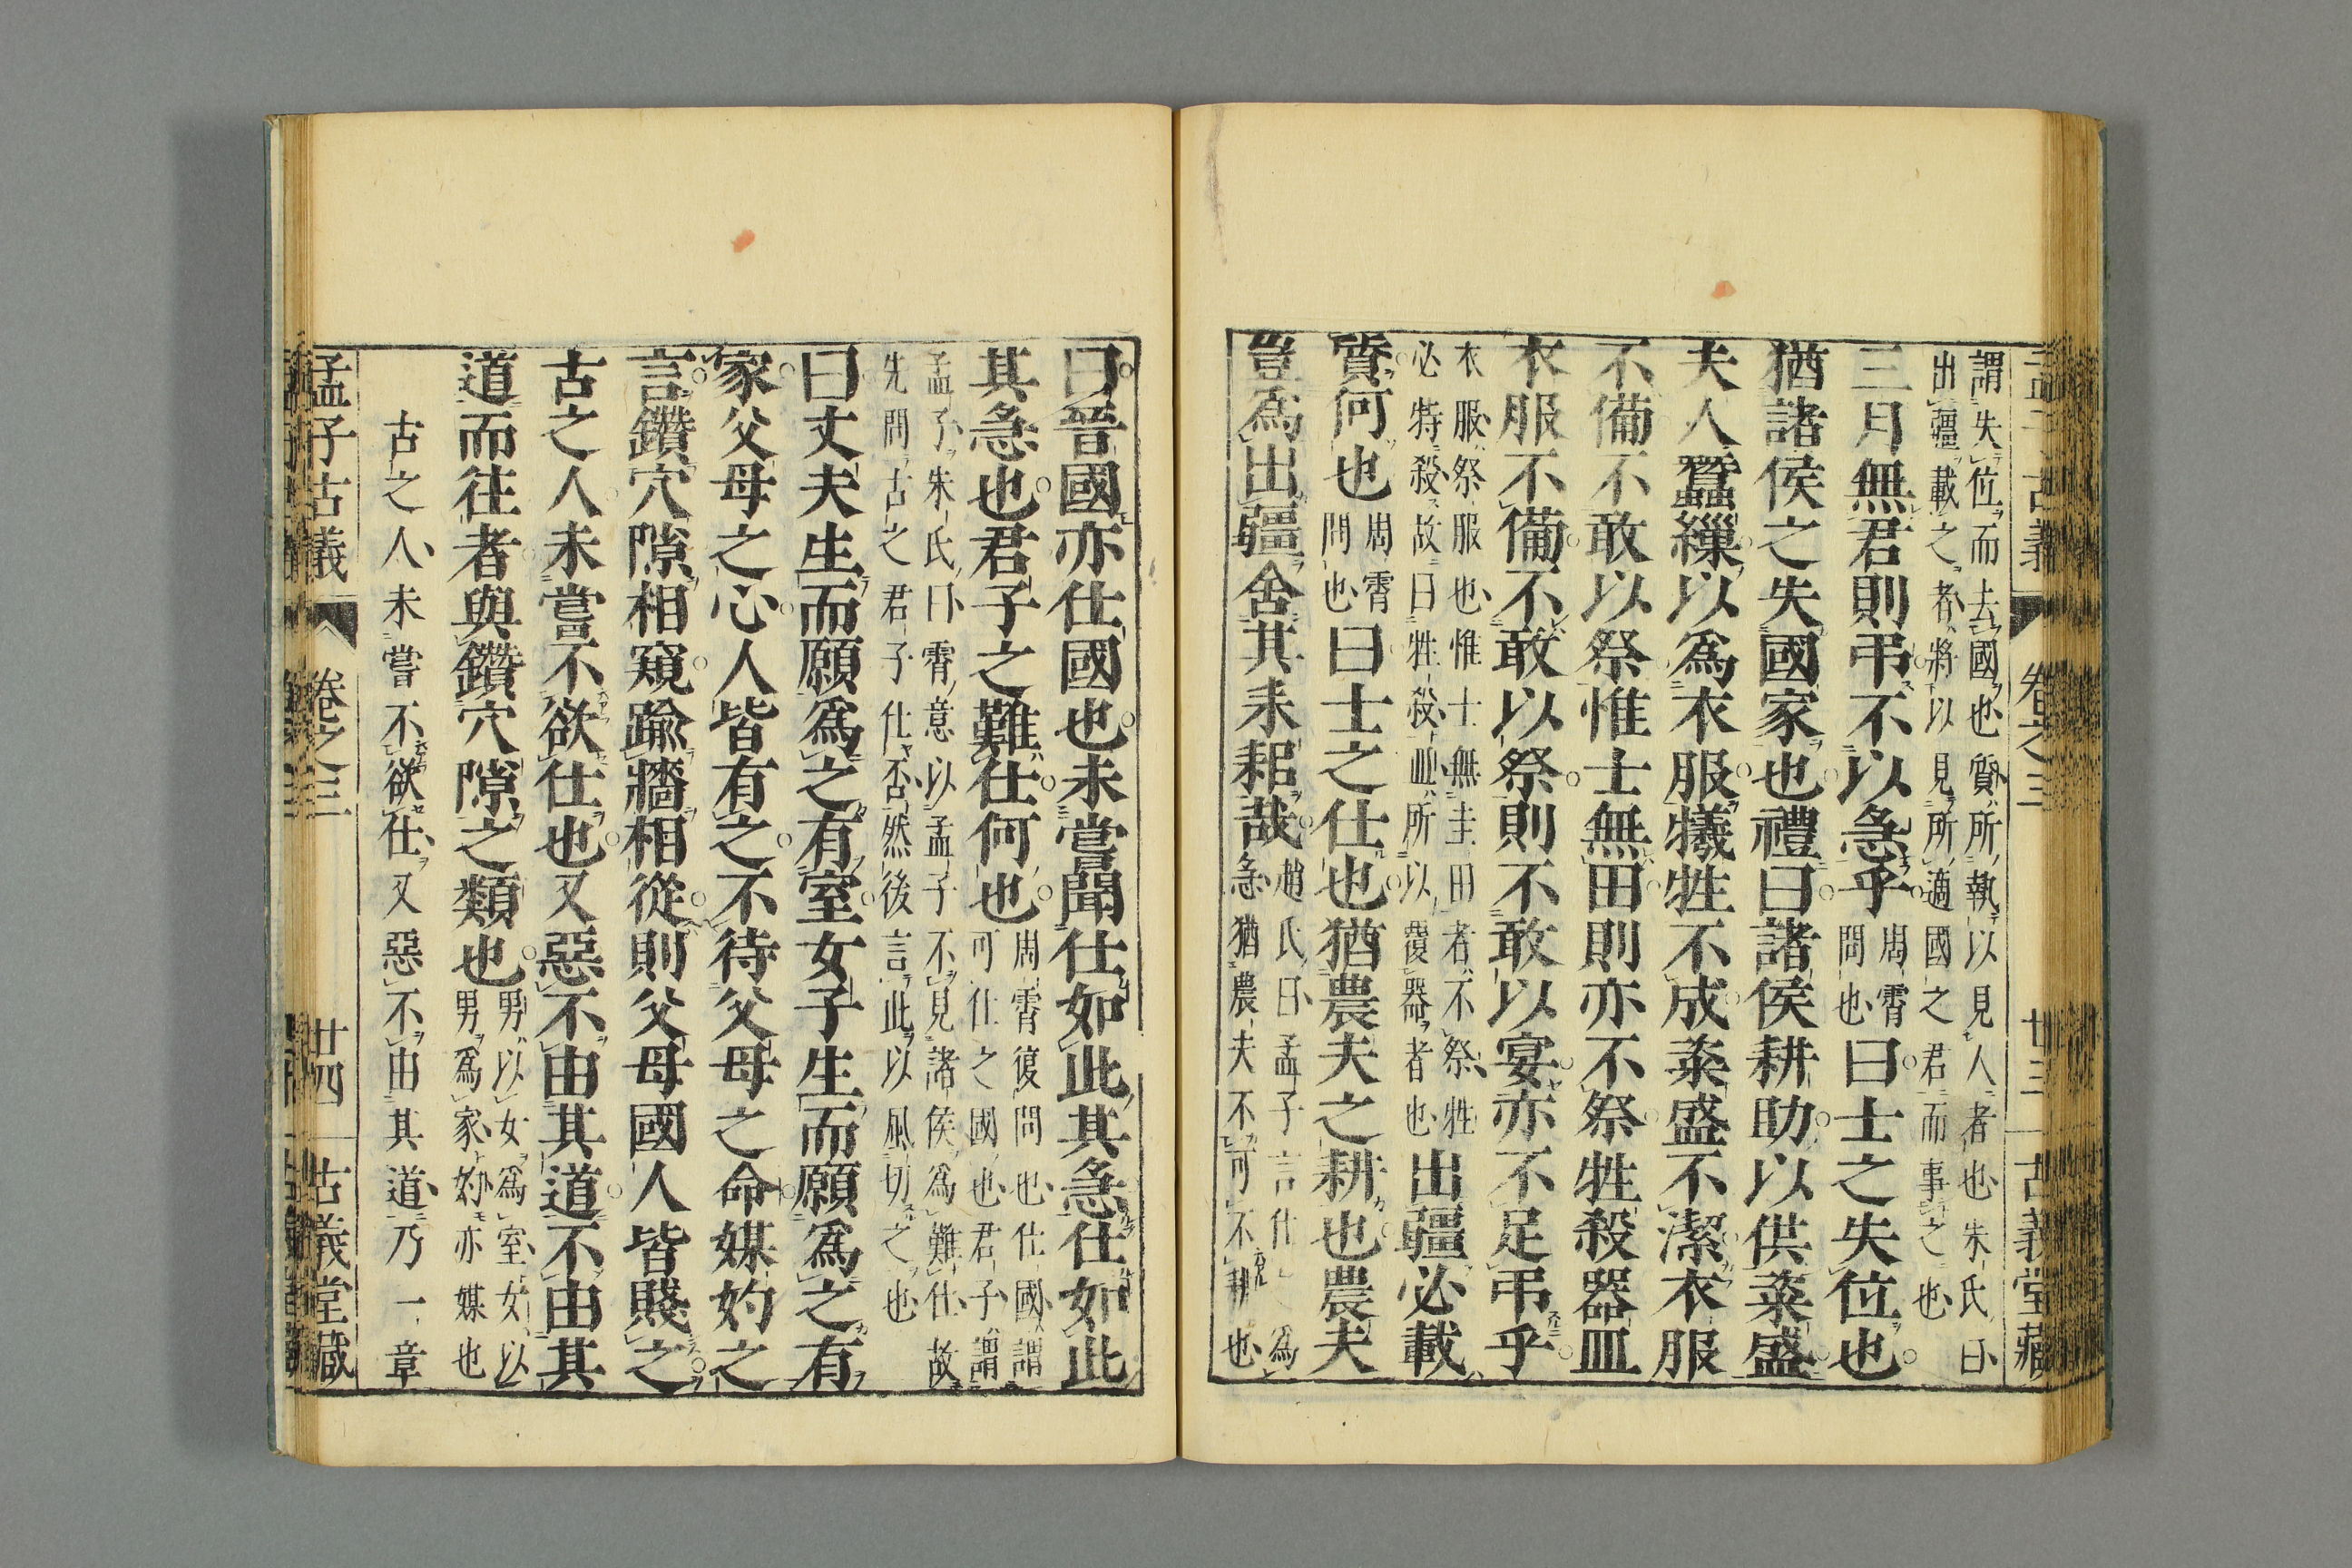 孟子古義 卷之三 廿三 古義堂藏
謂失位而去國也質所執以見人者也朱氏曰
出疆載之者將以見所適國之君而事之也
三月無君則弔不以急乎周霄問也曰士之失位也
猶諸侯之失國家也禮曰諸侯耕助以供粢盛
夫人蠶繅以爲衣服犧牲不成粢盛不潔衣服
不備不敢以祭惟士無田則亦不祭牲殺器皿
衣服不備不敢以祭則不敢以宴亦不足弔乎
衣服祭服也惟士無圭田者不祭牲
必特殺故曰牲殺皿所以覆器者也出疆必載
質何也周霄問也曰士之仕也猶農夫之耕也農夫
豈爲出疆舍其耒耜哉趙氏曰孟子言仕之爲
急猶農夫不可不耕也
曰晉國亦仕國也未嘗聞仕如此其急仕如此
其急也君子之難仕何也周霄復問也仕國謂
可仕之國也君子謂
孟子朱氏曰霄意以孟子不見諸侯爲難仕故
先問古之君子仕否然後言此以風切之也
曰丈夫生而願爲之有室女子生而願爲之有
家父母之心人皆有之不待父母之命媒妁之
言鑽穴隙相窺踰牆相從則父母國人皆賤之
古之人未嘗不欲仕也又惡不由其道不由其
道而往者與鑽穴隙之類也男以女爲室女以
男爲家妁亦媒也
古之人未嘗不欲仕又惡不由其道乃一章
孟子古義 卷之三 廿四 古義堂藏